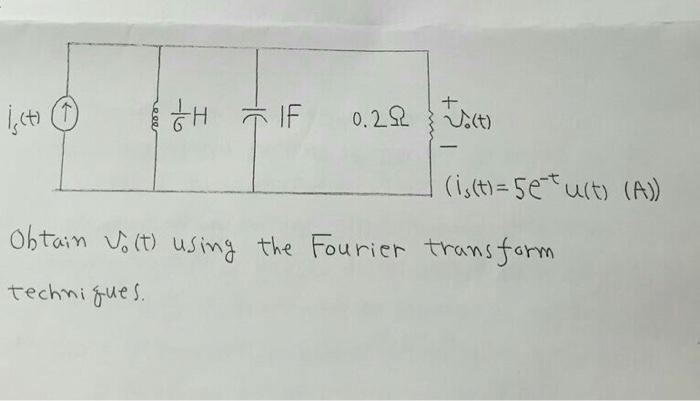 i_s(t) 1/6 H 1F 0.2Ω + v_o(t) −
(i_s(t) = 5e^-t u(t) (A))
Obtain v_o(t) using the Fourier transform
techniques.